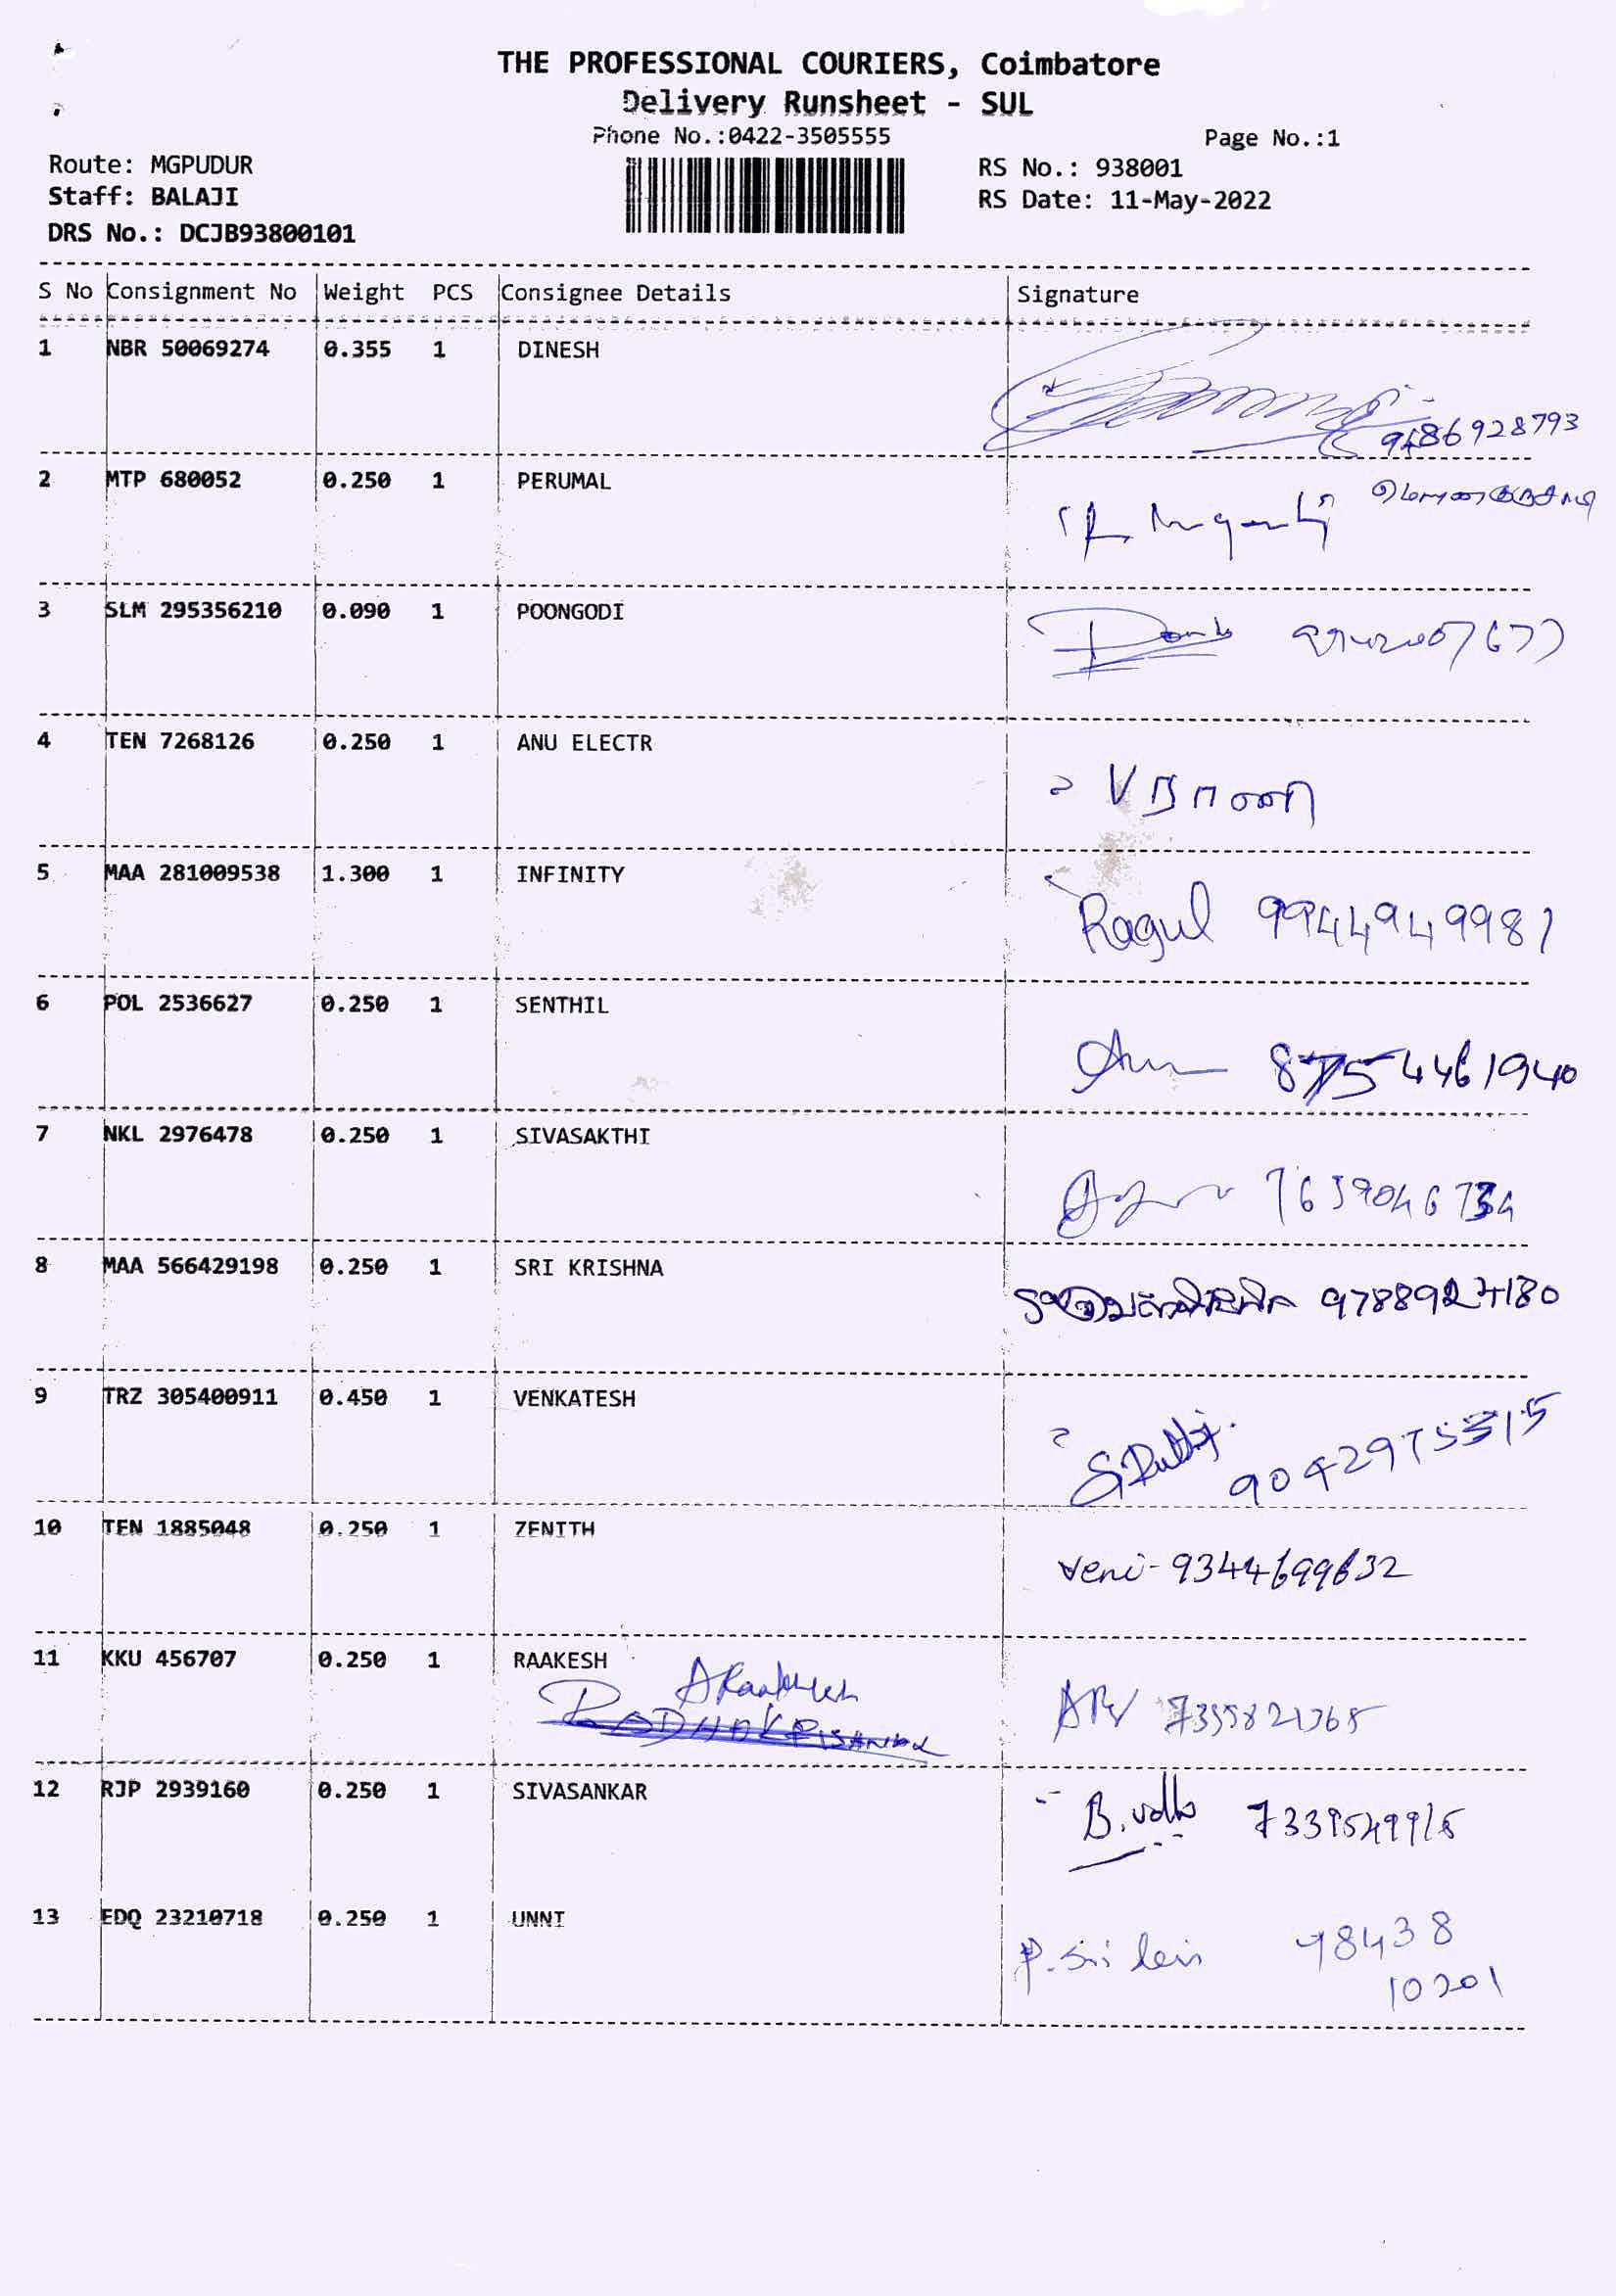 THE PROFESSIONAL COURIERS, Coimbatore
Delivery Runsheet - SUL
Phone No.:0422-3505555 Page No.:1
Route: MGPUDUR RS No.: 938001
Staff: BALAJI RS Date: 11-May-2022
DRS No.: DCJB93800101
S No Consignment No Weight PCS Consignee Details Signature
1 NBR 50069274 0.355 1 DINESH
9486928793
2 MTP 680052 0.250 1 PERUMAL
3 SLM 295356210 0.090 1 POONGODI
4 TEN 7268126 0.250 1 ANU ELECTR
5 MAA 281009538 1.300 1 INFINITY
Ragul 9944949981
6 POL 2536627 0.250 1 SENTHIL
8754461940
7 NKL 2976478 0.250 1 SIVASAKTHI
8 MAA 566429198 0.250 1 SRI KRISHNA
9788924180
9 TRZ 305400911 0.450 1 VENKATESH
10 TEN 1885048 0.250 1 ZENITH
Veni - 9344699632
11 KKU 456707 0.250 1 RAAKESH
12 RJP 2939160 0.250 1 SIVASANKAR
13 EDQ 23210718 0.250 1 UNNI
98438
10201